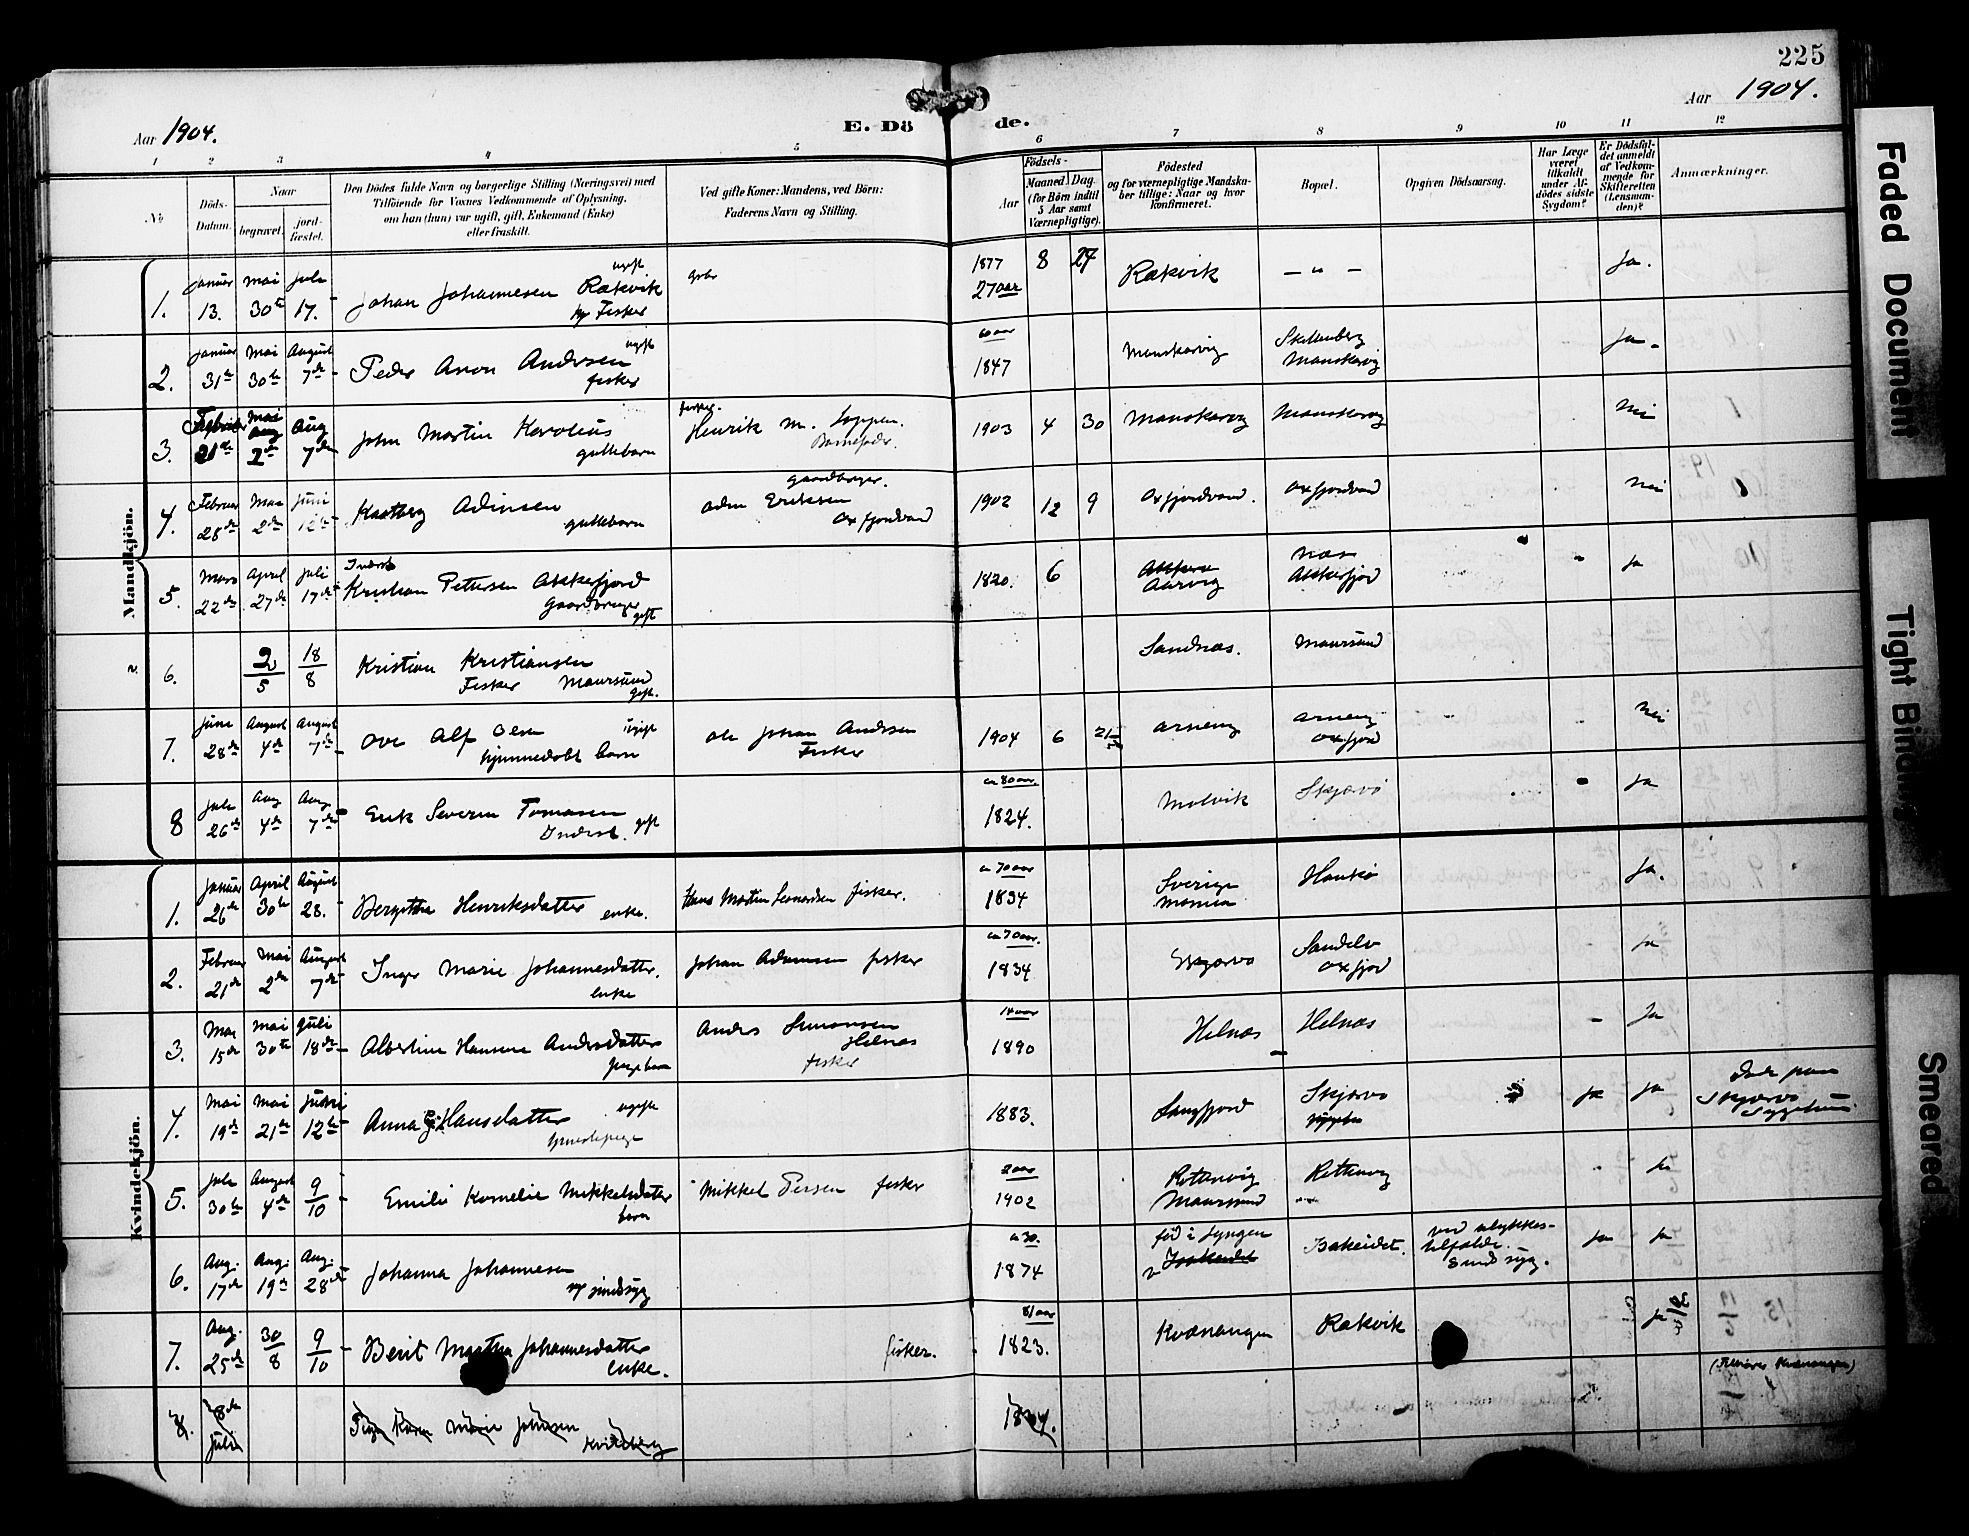 225
Aar 1904.
E. Dö de.
Aar 1904.
1 2 3 4 5 6 7 8 9 10 11 12
No
Döds-Datum.
Naar
begravet.
jord-fæstet.
Den Dödes fulde Navn og borgerlige Stilling (Næringsvei) med
Tilföiende for Voxnes Vedkommende af Oplysning,
om han (hun) var ugift, gift, Enkemand (Enke)
eller fraskilt.
Ved gifte Koner: Mandens, ved Börn:
Faderens Navn og Stilling.
Födsels-
Aar
Maaned. Dag.
(for Börn indtil
5 Aar samt
Værnepligtige).
Födested
og for værnepligtige Mandska-
ber tillige: Naar og hvor
konfirmeret.
Bopæl.
Opgiven Dödsaarsag.
Har Læge
været
tilkaldt
under Af-
dödes sidste
Sygdom?
Er Dödsfal-
det anmeldt
af Vedkom-
mende for
Skifteretten
(Lensman-
den)?
Anmærkninger.
Mandkjön.
1. Januar 13. Mai 30te Juli 17. Johan Johannesen Rækvik ugift Fisker 1877 27 aar 8 27 Rækvik — " — Ja.
2. Januar 31te Mai 30te August 7de Peder Aron Andersen ugift fisker 60 aar 1847 Manskarvig Manskarvig Ja
3. Februar 21de Aug 2de Aug 7de John Martin Karolius guttebarn fisker Henrik M. Loppen. Barnefader 1903 4 30 Manskarvig Manskarvig Nei
4. Februar 28de 2de Juni 12te Adinsen guttebarn gaardbruger. Adin Eriksen Oxfjordvand 1902 12 9 Oxfjordvand. Oxfjordvand Nei
5. Mars 22de April 27de Juli 17de Inderst Kristian Pettersen Akkerfjord Gaardbruger gift 1820. 6 Aarvig Akkerfjord Ja
6. 2/5 18/8 Kristian Kristiansen Fisker Maursund gift. Sandnæs. Maursund
7. Juni 28de August 4de August 7de Ove Alf Olsen ugift hjemmedøbt barn Ole Johan Andersen Fisker 1904 6 21 Arnøen Oxfjord Nei
8 Juli 26de Aug 4de Aug. 7de Erik Severin Tomasen Inderst. gift ca 80 aar 1824. Skjærvø Ja
Kvindekjön.
1. Januar 26de April 30te August 28. Henriksdatter enke. Hans Martin Leonardsen fisker. ca 70 aar 1834 Sverige Haukø Ja.
2. Februar 21de Mai 2de August 7de Inger Marie Johannesdatter. enke Johan Adamsen fisker ca 70 aar. 1834 Skjærvø Oxfjord Ja
3. Mai 15de Mai 30te Juli 18de Albertine Hansine Andersdatter pigebarn Anders Simonsen Helnæs fisker 14 aar 1890 Helnæs Helnæs Ja
4. Mai 19de Mai 21de Juni 12te Anna Hansdatter ugift tjenestepige 1883. Langfjord Skjærvø Ja Ja Døde paa Skjærvø Sygehus
5. Juli 30te August 4de 9/10 Emilie Kornelie Mikkelsdatter barn Mikkel Persen fisker 2 aar 1902 Rottenvig Maursund Rottenvig Ja
6. Aug. 17de Aug. 19de Aug. 28de Johanna Johannesen sindsyg ca 30. 1874 fød i Lyngen Isakeidet. ved ulykkes-tilfælde. Sindsyg. Ja Ja
7. Aug. 25de 30/8 9/10 Berit Martha Johannesdatter enke. fisker. 81 aar 1823. Kvænangen Rækvik Ja (Tilhører Kvænangen)
8. 8de Juli Karen Marie Johnsen 18
Faded Document
Tight Binding
Smeared